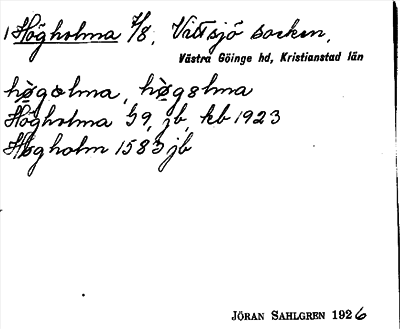 1 Högholma 1/8, Vittsjö socken,
Västra Göinge hd, Kristianstad län
hø̀golma, hø̀gɐlma
Högholma 59, jb, kb 1923
Høgholm 1583 jb
JÖRAN SAHLGREN 1926